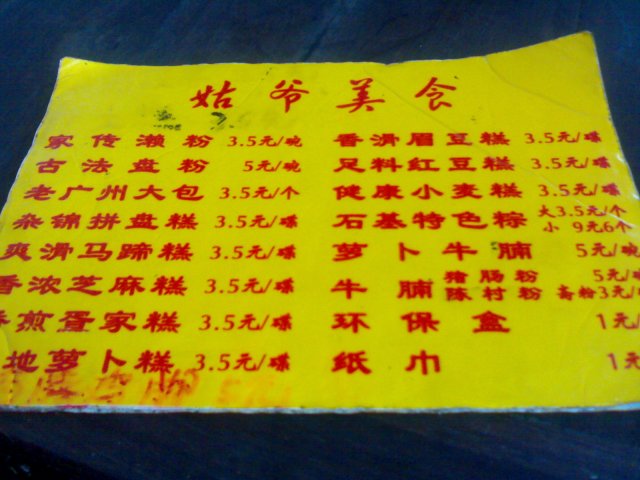 姑爷美食
家传濑粉 3.5元/碗
古法盘粉 5元/碗
老广州大包 3.5元/个
杂锦拼盘糕 3.5元/碟
爽滑马蹄糕 3.5元/碟
香浓芝麻糕 3.5元/碟
煎蛋家糕 3.5元/碟
地萝卜糕 3.5元/碟
香滑眉豆糕 3.5元/碟
足料红豆糕 3.5元/碟
健康小麦糕 3.5元/碟
石基特色粽 大3.5元/个
小 9元6个
萝卜牛腩 5元/碗
牛腩 猪肠粉 5元/
陈村粉 斋粉3元/
环保盒 1元/
纸巾 1元